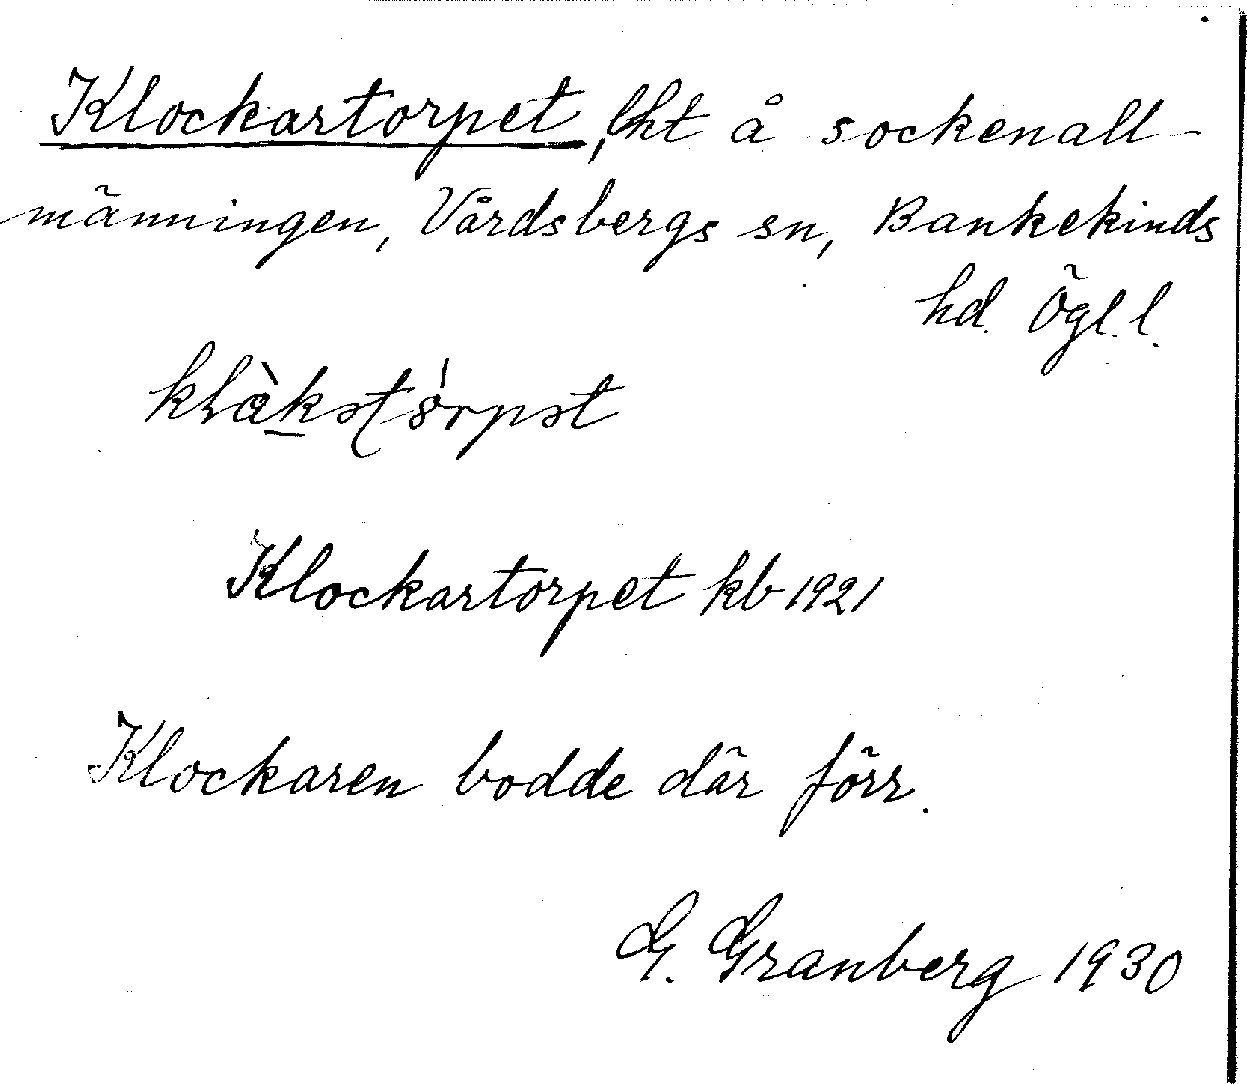 Klockartorpet, lht å sockenall-
männingen, Vårdsbergs sn, Bankekinds
hd. Ögl. l.
Klockartorpet kb 1921
Klockaren bodde där förr.
G. Granberg 1930